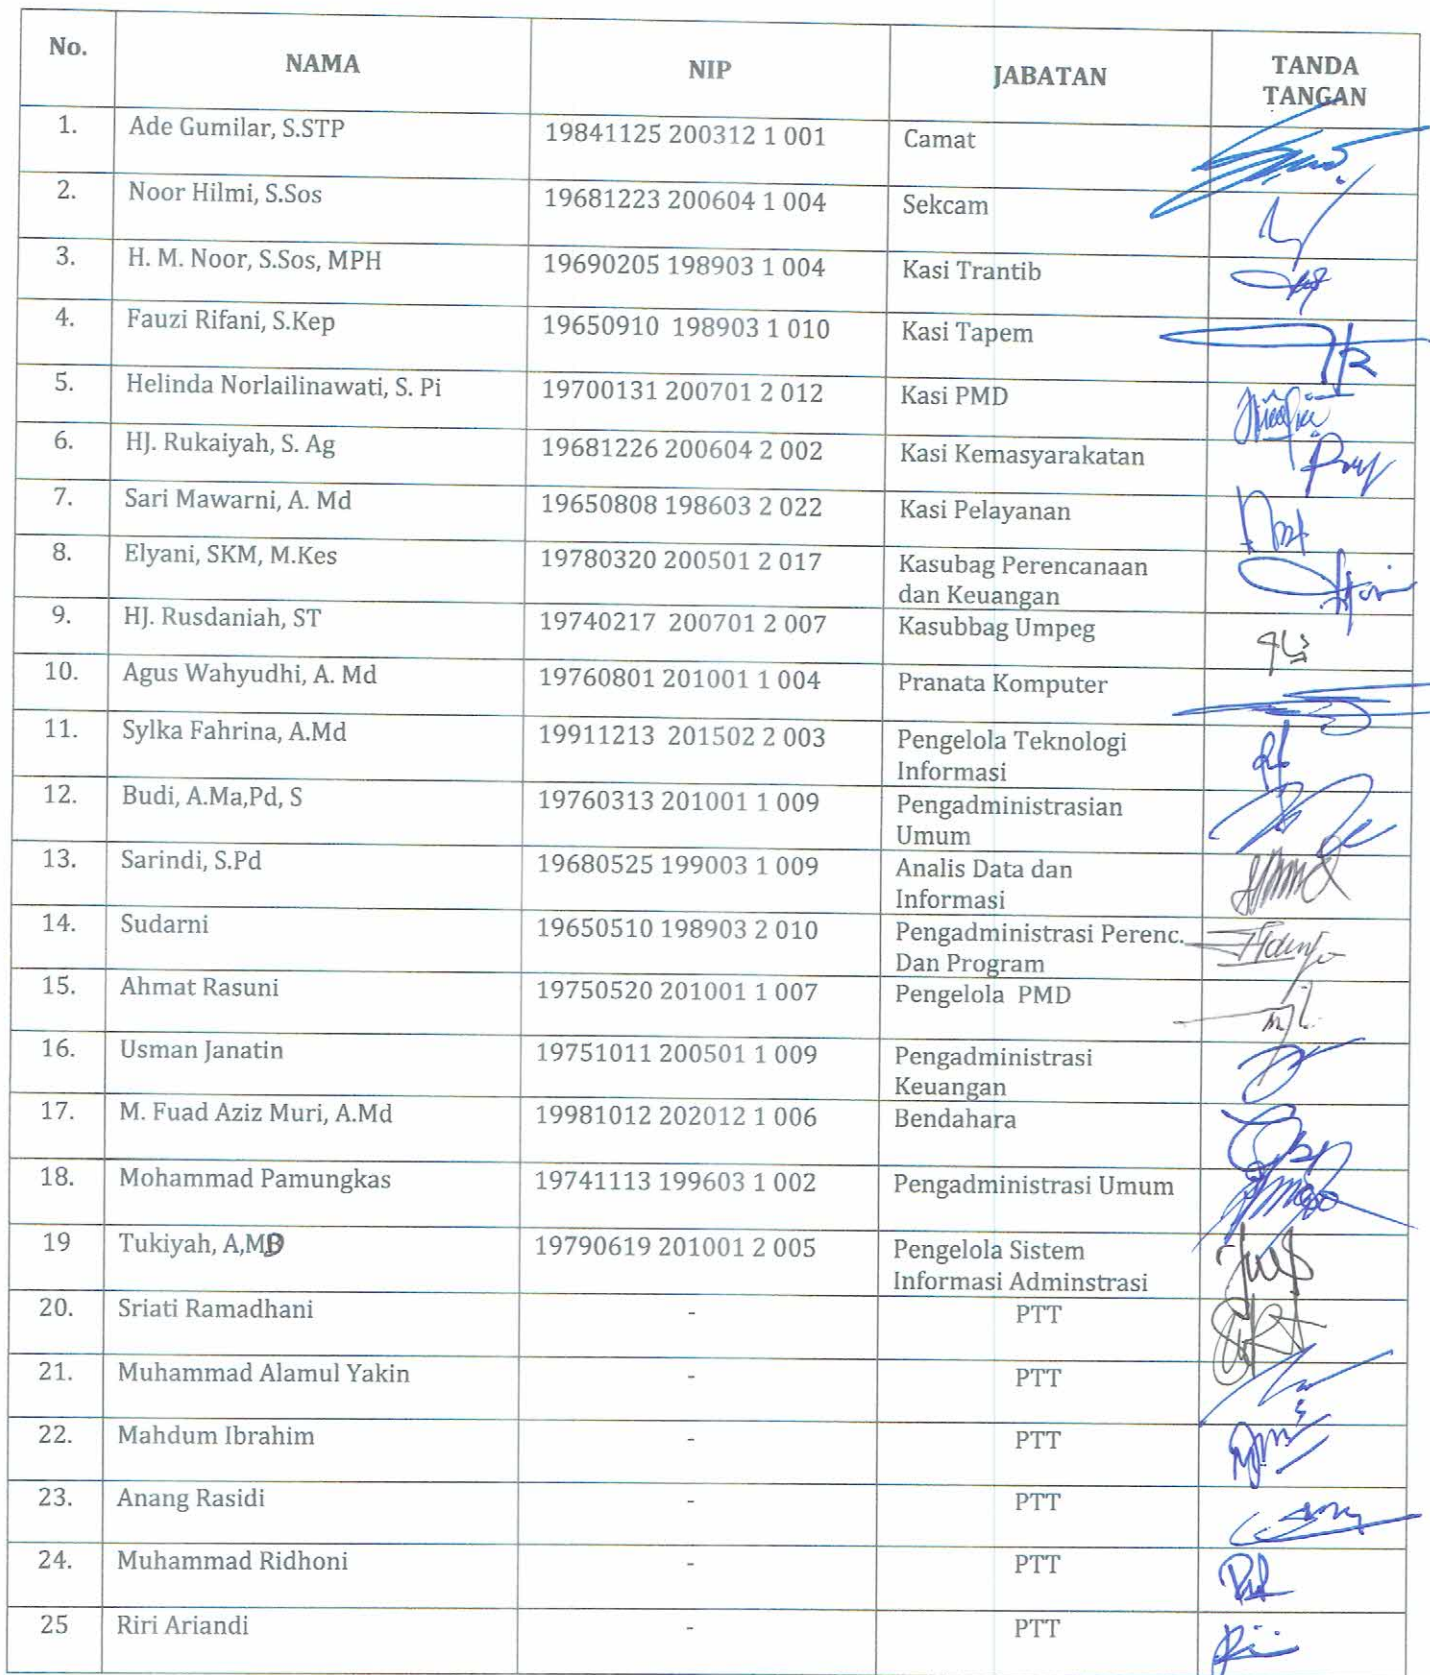 No. NAMA NIP JABATAN TANDA
TANGAN
1. Ade Gumilar, S.STP 19841125 200312 1 001 Camat
2. Noor Hilmi, S.Sos 19681223 200604 1 004 Sekcam
3. H. M. Noor, S.Sos, MPH 19690205 198903 1 004 Kasi Trantib
4. Fauzi Rifani, S.Kep 19650910 198903 1 010 Kasi Tapem
5. Helinda Norlailinawati, S. Pi 19700131 200701 2 012 Kasi PMD
6. HJ. Rukaiyah, S. Ag 19681226 200604 2 002 Kasi Kemasyarakatan
7. Sari Mawarni, A. Md 19650808 198603 2 022 Kasi Pelayanan
8. Elyani, SKM, M.Kes 19780320 200501 2 017 Kasubag Perencanaan
dan Keuangan
9. HJ. Rusdaniah, ST 19740217 200701 2 007 Kasubbag Umpeg
10. Agus Wahyudhi, A. Md 19760801 201001 1 004 Pranata Komputer
11. Sylka Fahrina, A.Md 19911213 201502 2 003 Pengelola Teknologi
Informasi
12. Budi, A.Ma,Pd, S 19760313 201001 1 009 Pengadministrasian
Umum
13. Sarindi, S.Pd 19680525 199003 1 009 Analis Data dan
Informasi
14. Sudarni 19650510 198903 2 010 Pengadministrasi Perenc.
Dan Program
15. Ahmat Rasuni 19750520 201001 1 007 Pengelola PMD
16. Usman Janatin 19751011 200501 1 009 Pengadministrasi
Keuangan
17. M. Fuad Aziz Muri, A.Md 19981012 202012 1 006 Bendahara
18. Mohammad Pamungkas 19741113 199603 1 002 Pengadministrasi Umum
19 Tukiyah, A,MD 19790619 201001 2 005 Pengelola Sistem
Informasi Adminstrasi
20. Sriati Ramadhani - PTT
21. Muhammad Alamul Yakin - PTT
22. Mahdum Ibrahim - PTT
23. Anang Rasidi - PTT
24. Muhammad Ridhoni - PTT
25 Riri Ariandi - PTT